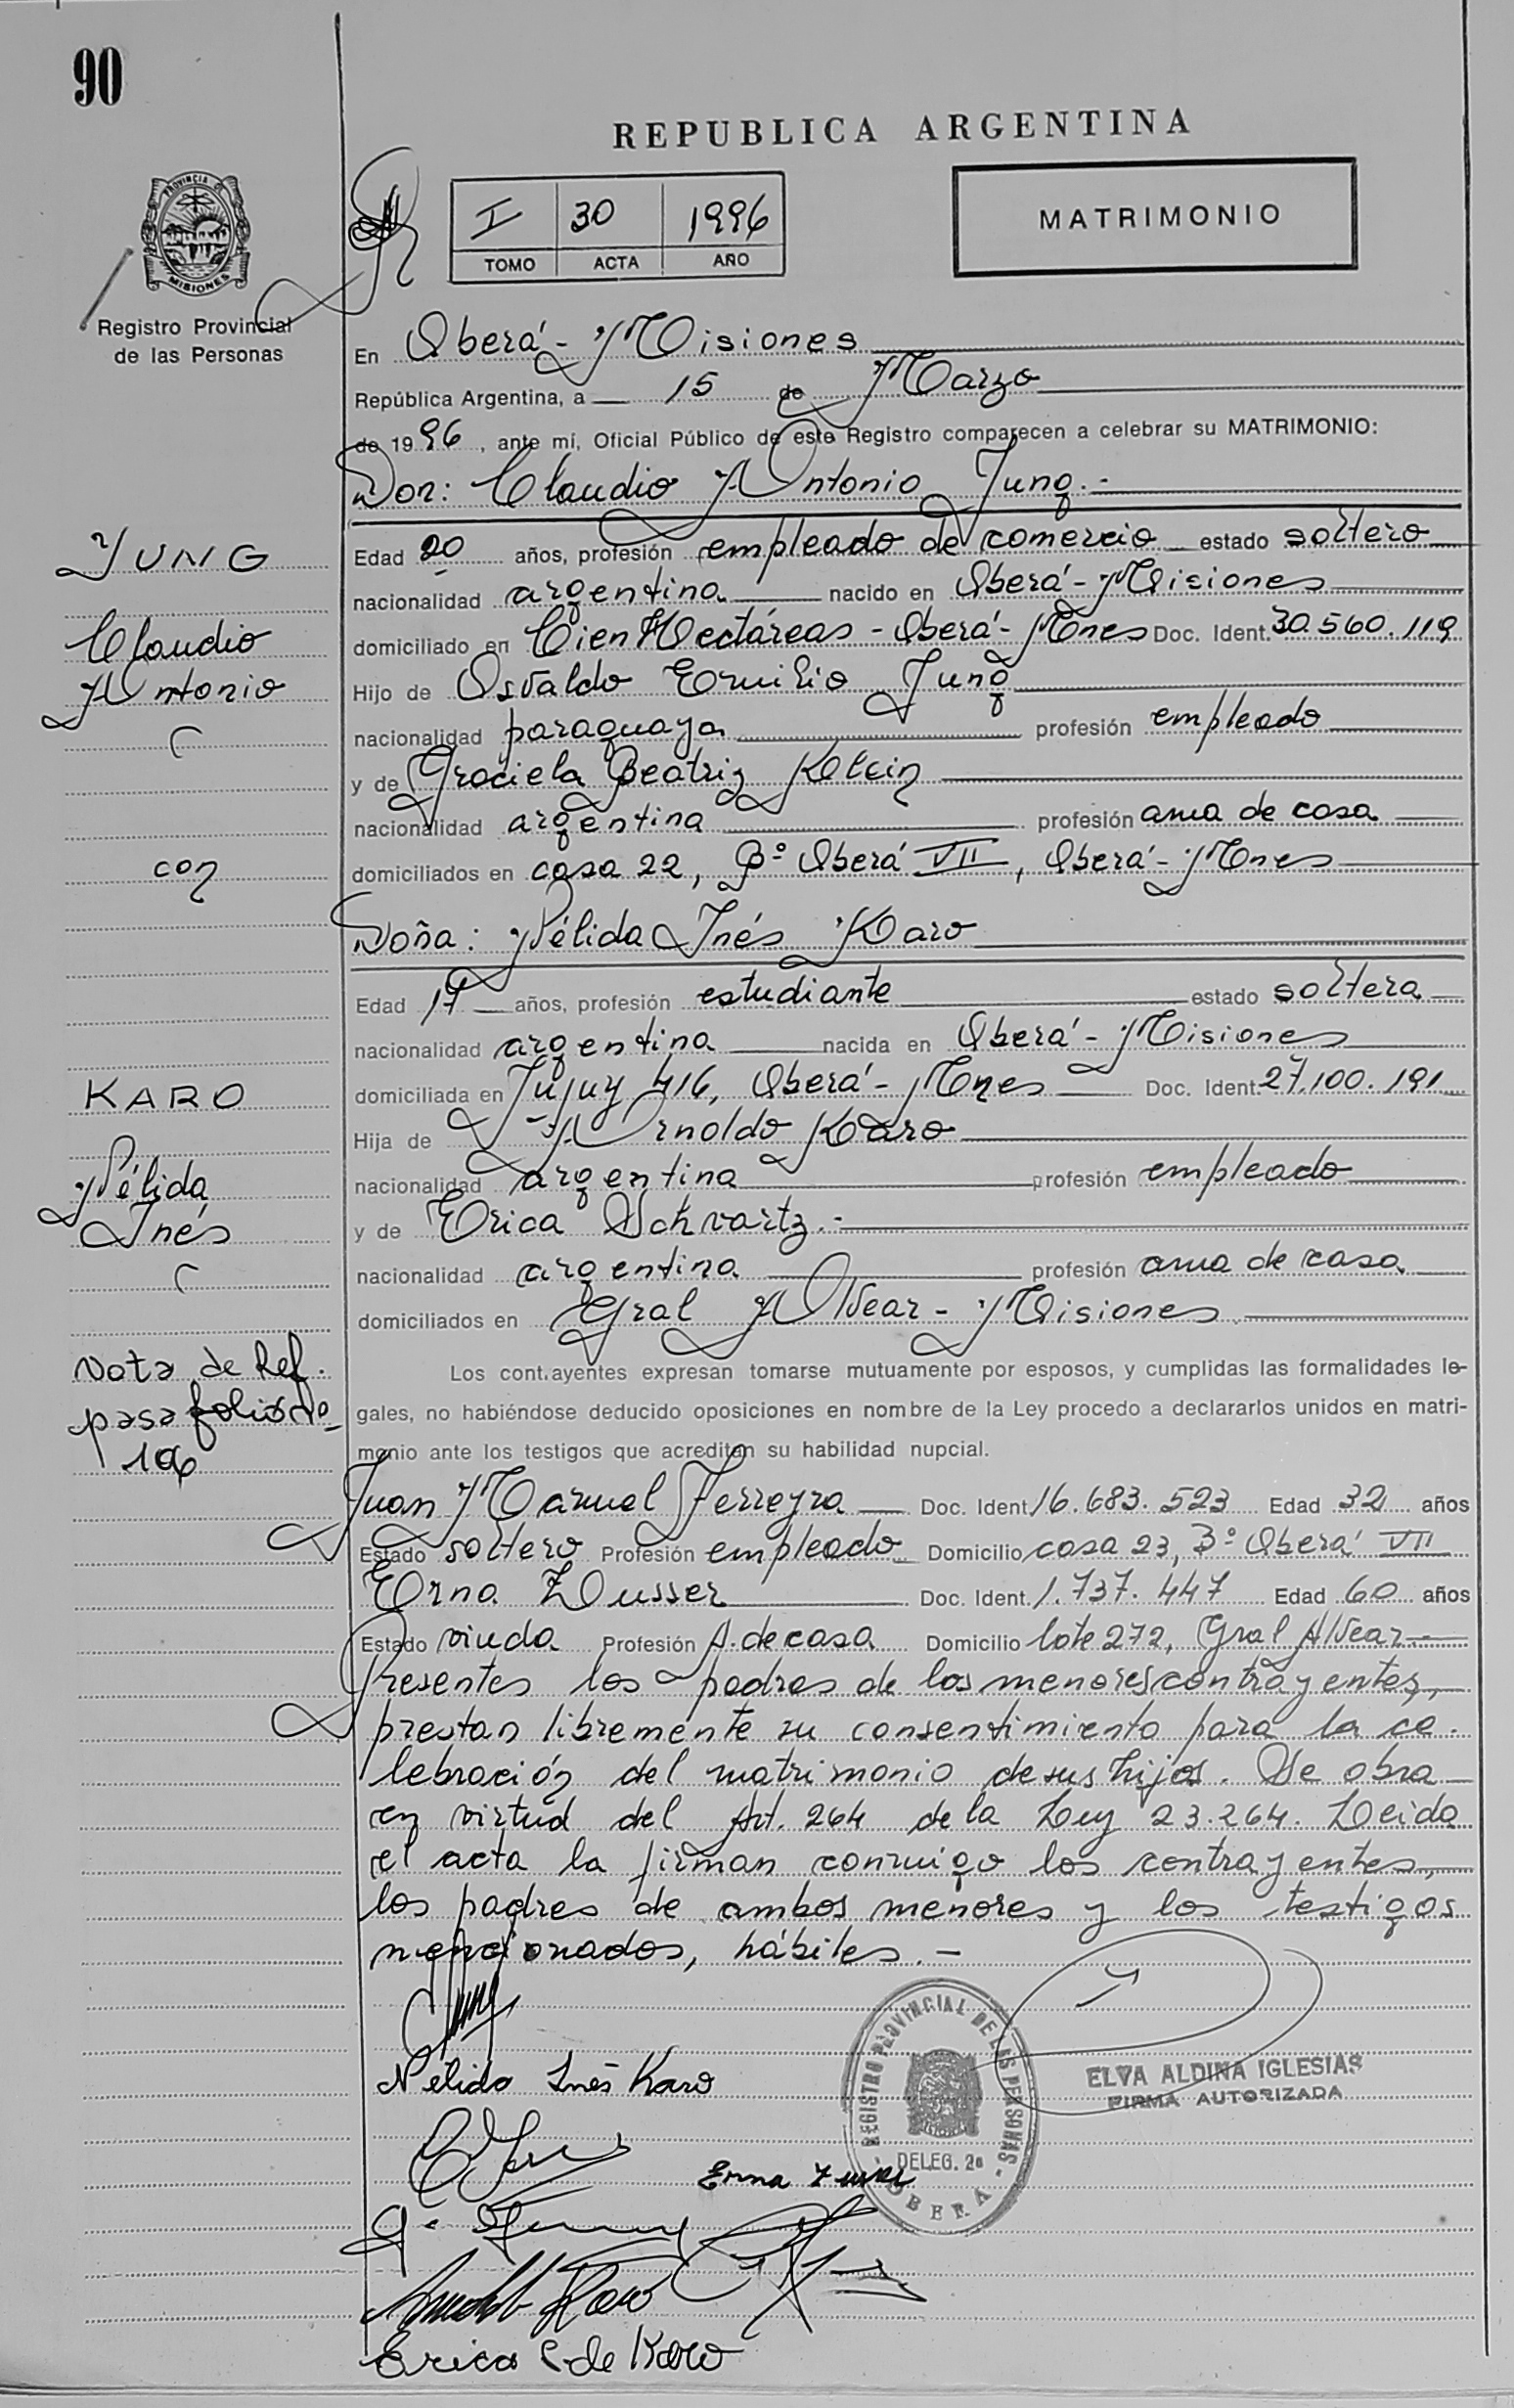 90
REPUBLICA ARGENTINA
PROVINCIA DE
MISIONES
Registro Provincial
de las Personas
I 30 1996
TOMO ACTA AÑO
MATRIMONIO
En Oberá - Misiones
República Argentina, a 15 de Marzo
de 1996, ante mí, Oficial Público de este Registro comparecen a celebrar su MATRIMONIO:
Don: Claudio Antonio Jung.-
Edad 20 años, profesión empleado de comercio estado soltero
nacionalidad argentina nacido en Oberá - Misiones
domiciliado en Cien Hectáreas - Oberá - Mnes Doc. Ident. 30.560.119
Hijo de Osvaldo Emilio Jung
nacionalidad paraguaya profesión empleado
y de Graciela Beatriz Klein
nacionalidad argentina profesión ama de casa
domiciliados en casa 22, Bº Oberá VII, Oberá - Mnes
Doña: Nélida Inés Karo
Edad 17 años, profesión estudiante estado soltera
nacionalidad argentina nacida en Oberá - Misiones
domiciliada en Jujuy 416, Oberá - Mnes Doc. Ident. 27.100.191
Hija de Arnoldo Karo
nacionalidad argentina profesión empleado
y de Erica Schvartz.-
nacionalidad argentina profesión ama de casa
domiciliados en Gral Alvear - Misiones
Los cont.ayentes expresan tomarse mutuamente por esposos, y cumplidas las formalidades le-
gales, no habiéndose deducido oposiciones en nombre de la Ley procedo a declararlos unidos en matri-
monio ante los testigos que acreditan su habilidad nupcial.
Juan Manuel Ferreyra Doc. Ident 16.683.523 Edad 32 años
Estado soltero Profesión empleado Domicilio casa 23, Bº Oberá VII
Erna Zusser Doc. Ident. 1.737.447 Edad 60 años
Estado viuda Profesión A. de casa Domicilio lote 272, Gral Alvear
Presentes los padres de los menores contrayentes,
prestan libremente su consentimiento para la ce-
lebración del matrimonio de sus hijos. Se obra
en virtud del Art. 264 de la Ley 23.264. Leida
el acta la firman conmigo los contrayentes,
los padres de ambos menores y los testigos
mencionados, hábiles.-
JUNG
Claudio
Antonio
con
KARO
Nélida
Inés
Nota de Ref.
pasa folio Nº
106
Nélida Inés Karo
REGISTRO PROVINCIAL DE LAS PERSONAS
DELEG. 2a
OBERA
ELVA ALDINA IGLESIAS
FIRMA AUTORIZADA
Erna
Arnoldo Karo
Erica S. de Karo